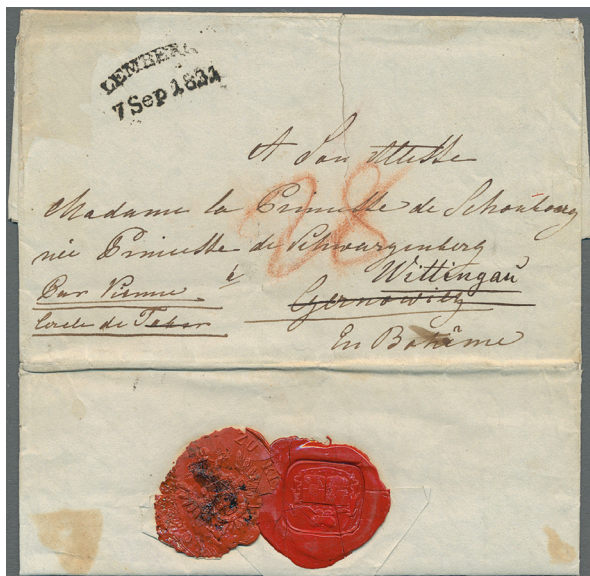 LEMBERG
7 Sep 1831
28
A Son Altesse
Madame la Princesse de Schönbourg
née Princesse de Schwarzenberg
Par Vienne à Wittingau
Cercle de Tabor
En Bohême
ZU